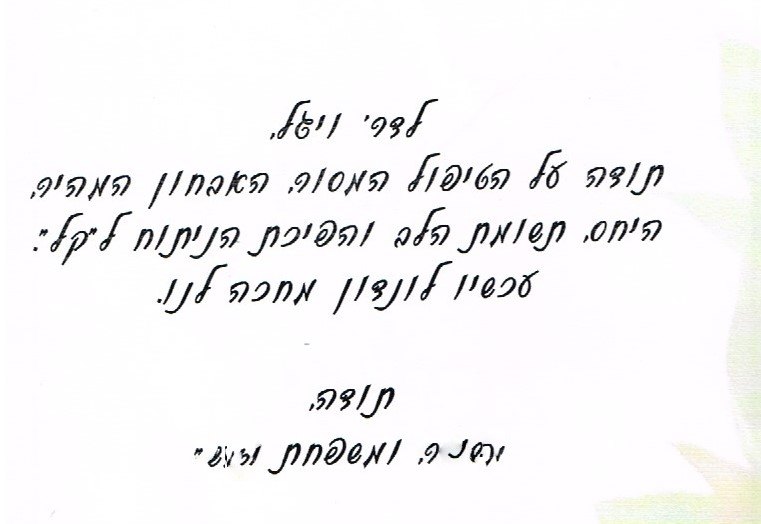 לדר' ויגל,
תודה על הטיפול המסור, האבחון המהיר,
היחס, תשומת הלב והפיכת הניתוח ל"קל".
עכשיו לונדון מחכה לנו.
תודה,
ומשפחת